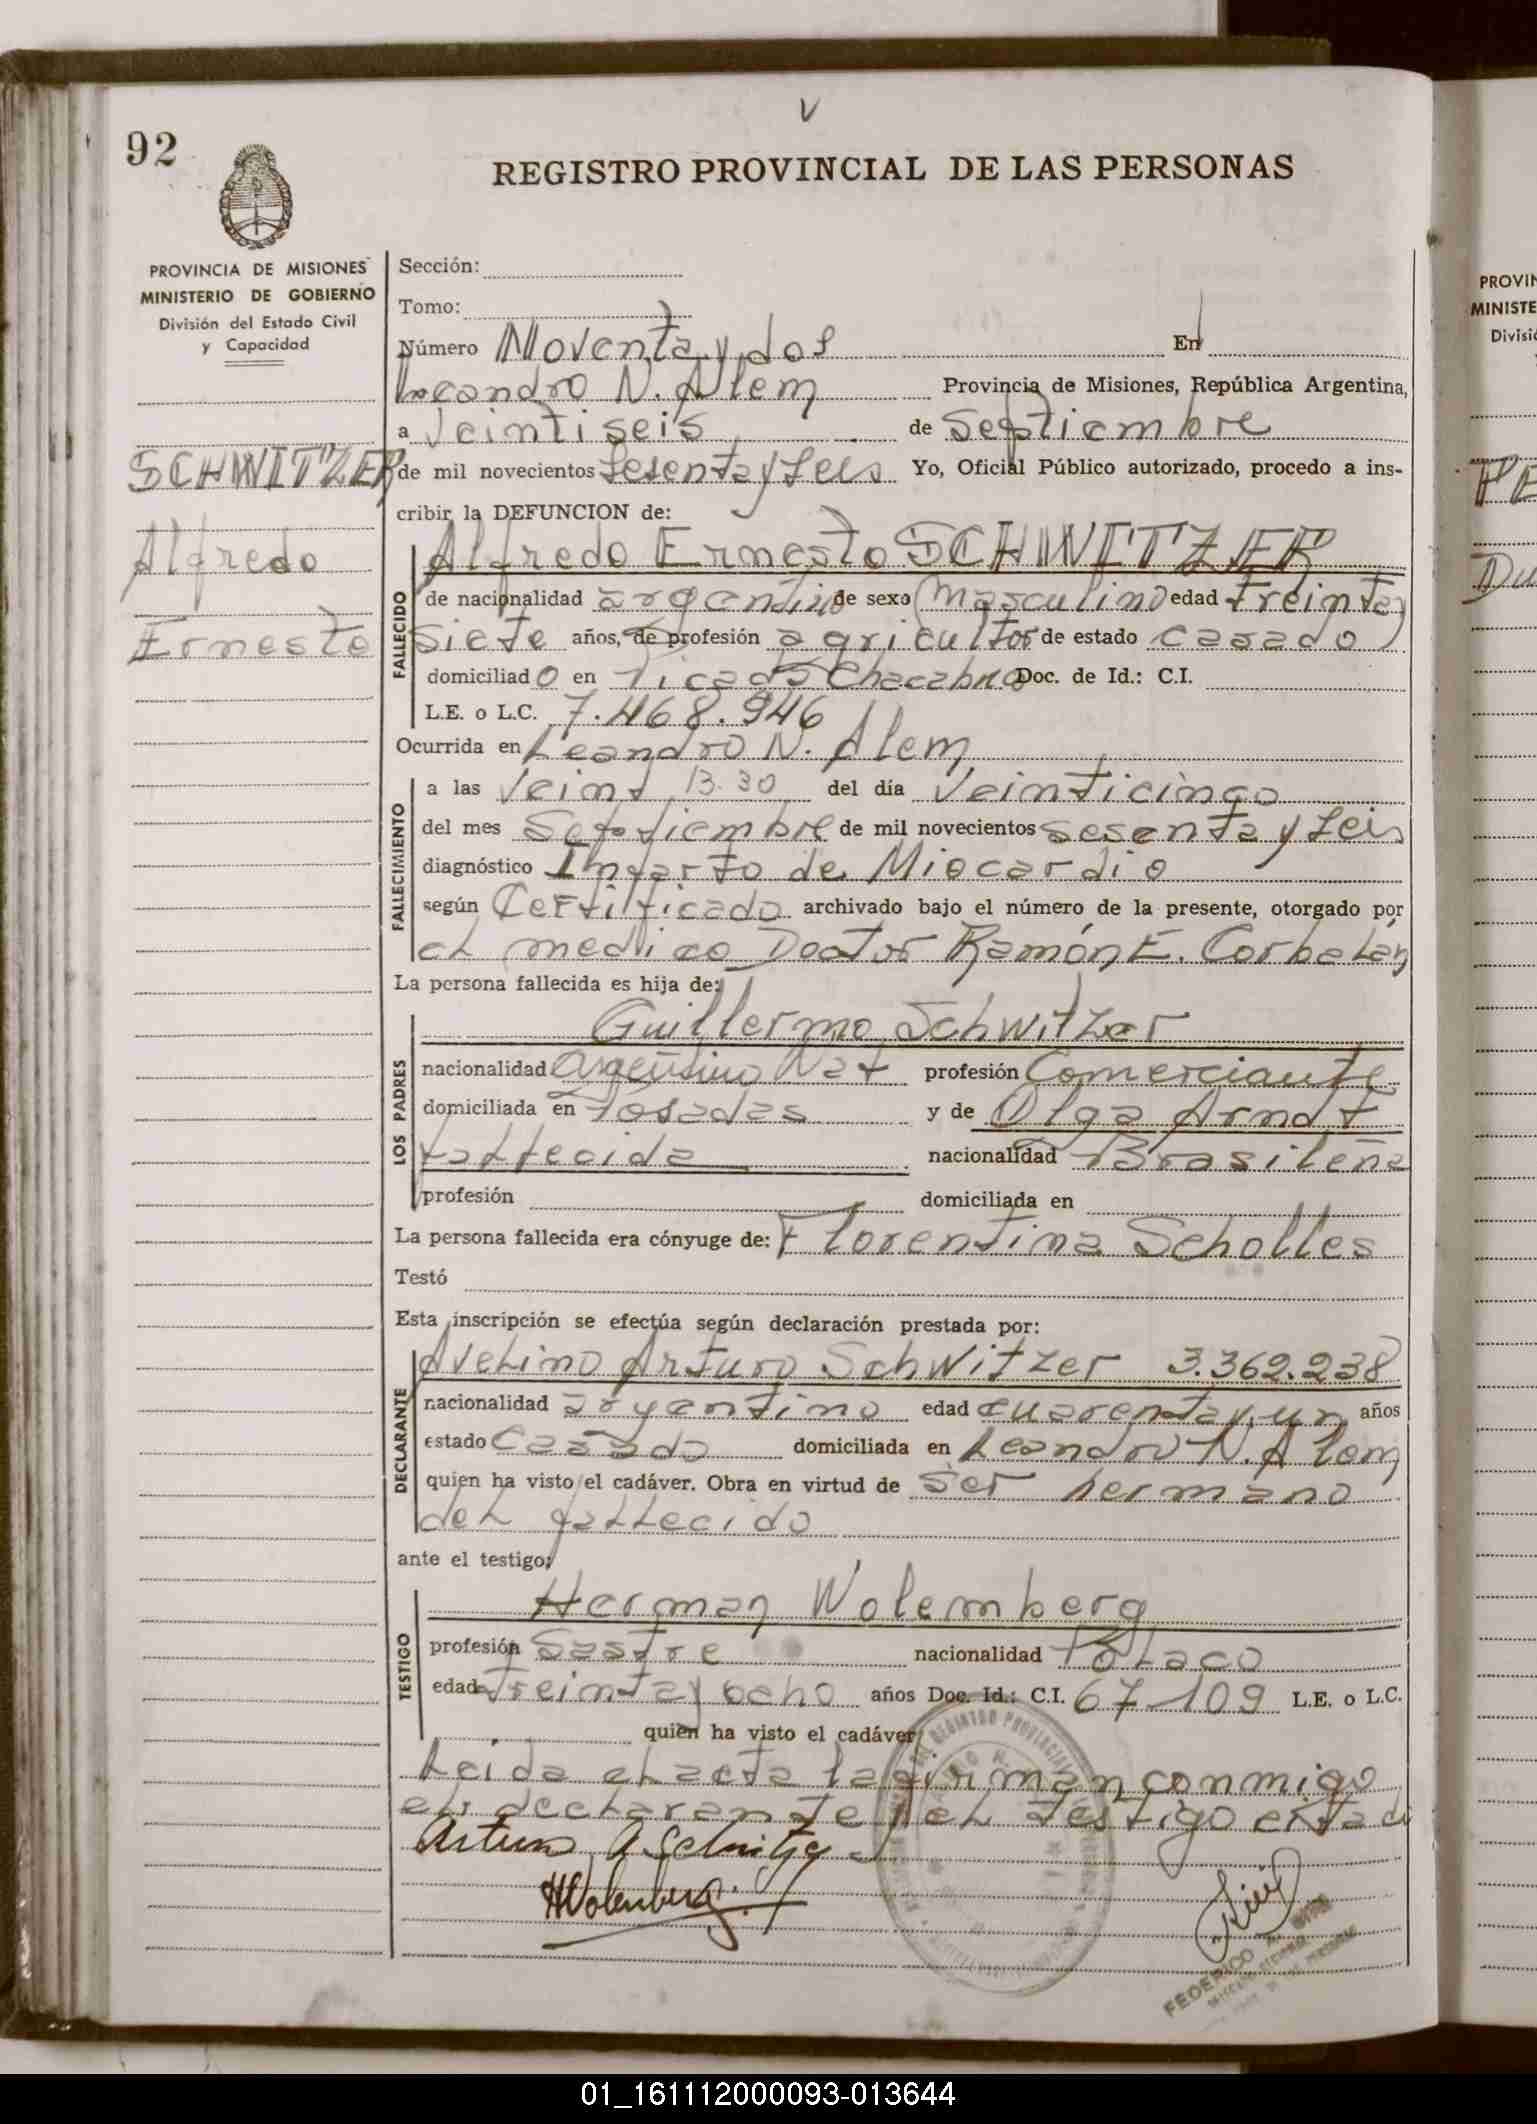 92
REGISTRO PROVINCIAL DE LAS PERSONAS
PROVINCIA DE MISIONES
MINISTERIO DE GOBIERNO
División del Estado Civil
y Capacidad
SCHWITZER
Alfredo
Ernesto
Sección:
Tomo:
Número Noventa y dos En
Leandro N. Alem Provincia de Misiones, República Argentina,
a Veintiseis de Septiembre
de mil novecientos sesenta y seis Yo, Oficial Público autorizado, procedo a ins-
cribir la DEFUNCION de:
FALLECIDO
Alfredo Ernesto SCHWITZER
de nacionalidad argentino de sexo Masculino edad treinta y
siete años, de profesión agricultor de estado casado
domiciliado en Picada Chacabuco Doc. de Id.: C.I.
L.E. o L.C. 7.468.946
Ocurrida en Leandro N. Alem
FALLECIMIENTO
a las Veint 13.30 del día Veinticinco
del mes Septiembre de mil novecientos sesenta y seis
diagnóstico Infarto de Miocardio
según Certificado archivado bajo el número de la presente, otorgado por
el medico Doctor Ramón E. Corbelán
La persona fallecida es hija de:
LOS PADRES
Guillermo Schwitzer
nacionalidad Argentino Nat profesión Comerciante
domiciliada en Posadas y de Olga Arndt
fallecida nacionalidad Brasileña
profesión domiciliada en
La persona fallecida era cónyuge de: Florentina Scholles
Testó
Esta inscripción se efectúa según declaración prestada por:
DECLARANTE
Avelino Arturo Schwitzer 3.362.238
nacionalidad argentino edad cuarenta y un años
estado Casado domiciliada en Leandro N. Alem
quien ha visto el cadáver. Obra en virtud de ser hermano
del fallecido
ante el testigo:
TESTIGO
Herman Wolemberg
profesión Sastre nacionalidad Polaco
edad treinta y ocho años Doc. Id.: C.I. 67-109 L.E. o L.C.
quien ha visto el cadáver
Leida el acta la firman conmigo
el declarante y el testigo citado
Arturo A Schwitzer
HWolenberg
FEDERICO
PROVIN
MINISTE
Divisió
01_161112000093-013644